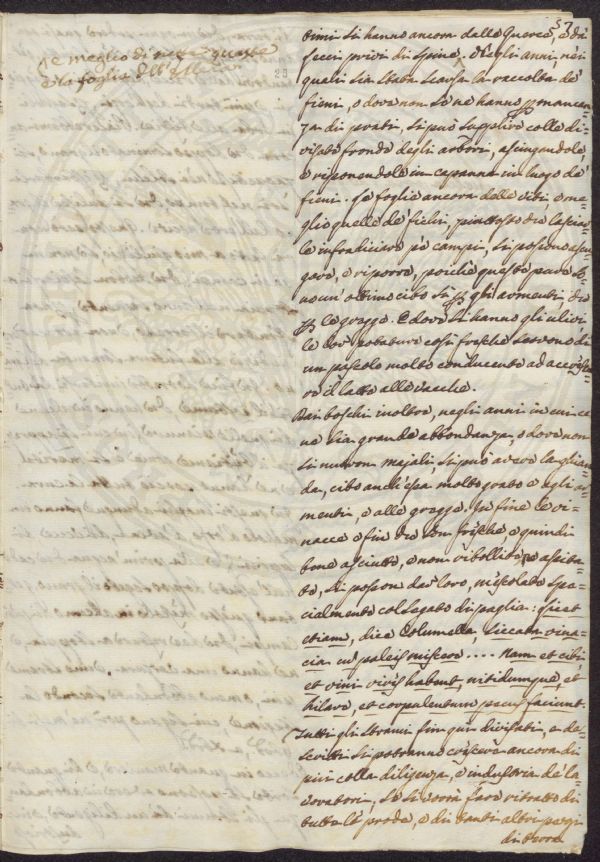 57
timi si hanno ancora dalle Querce, e da'
fecci privi di spine. Negli anni, nei
quali sia stata scarsa la raccolta de'
fieni, o dove non se ne hanno p mancan=
za di prati, si può supplire colle di=
visate fronde degli arbori, asciugandole,
e riponendole in capanne in luogo de'
fieni. Le foglie ancora delle viti, o me=
glio quelle de' fichi, piuttosto che lasciar=
le infradiciare pe' campi, si possono asciu=
gare, e riporre, poichè queste pure so=
no un' ottimo cibo sì p gli armenti, che
p le gregge. E dove si hanno gli ulivi
le lor' potature così fresche servono di
un pascolo molto conducente ad accresce=
re il latte alle vacche.
Dai boschi inoltre, negli anni in cui ce
ne sia grande abbondanza, o dove non
si nutron majali si può avere la ghian=
da, cibo anch'essa molto grato e agli ar=
menti, e alle gregge. In fine le vi=
nacce o fin che son fresche o quindi
bene asciutte, e non ribollite, o
to, si posson dar loro, mescolate spe=
cialmente col segato di paglia: sicet
etiam, dice Columella, siccata vina=
cia cu paleis miscere .... Nam et cibi
et vini vires habent, nitidumque, et
hilare, et corpulentum pecus faciunt.
Tutti gli strami fin qui divisati, e de=
scritti si potranno crescere ancora di
più colla diligenza, e industria de' la=
voratori, se si vorrà fare ritratto di
tutte le prode, e di tanti altri pezzi
di terra
Le meglio di
e la foglia dell'